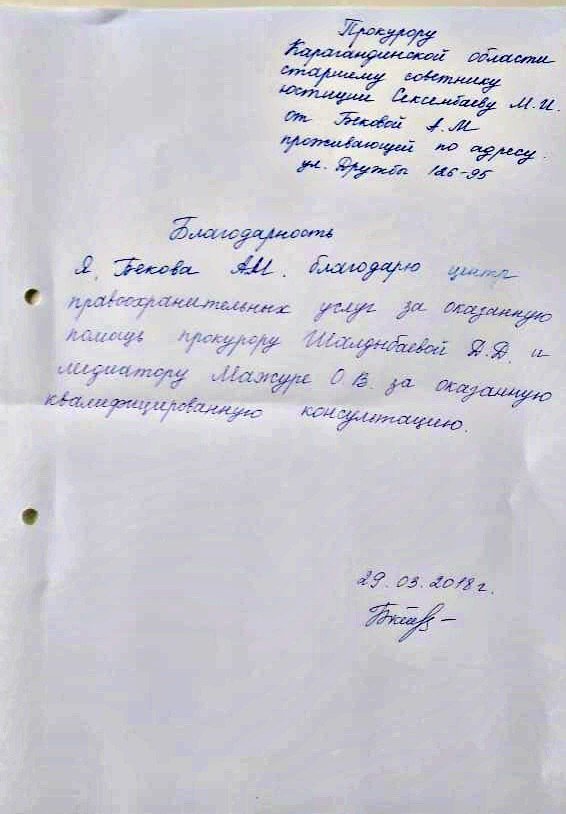 Прокурору
Карагандинской области
старшему советнику
юстиции Сексембаеву М.И.
от Бековой А.М
проживающей по адресу:
ул. Дружбы 126-95
Благодарность
Я, Бекова А.М. благодарю центр
правоохранительных услуг за оказанную
помощь прокурору Шалдыбаевой Д.Д. и
медиатору Мажуре О.В. за оказанную
квалифицированную консультацию.
29.03.2018г.